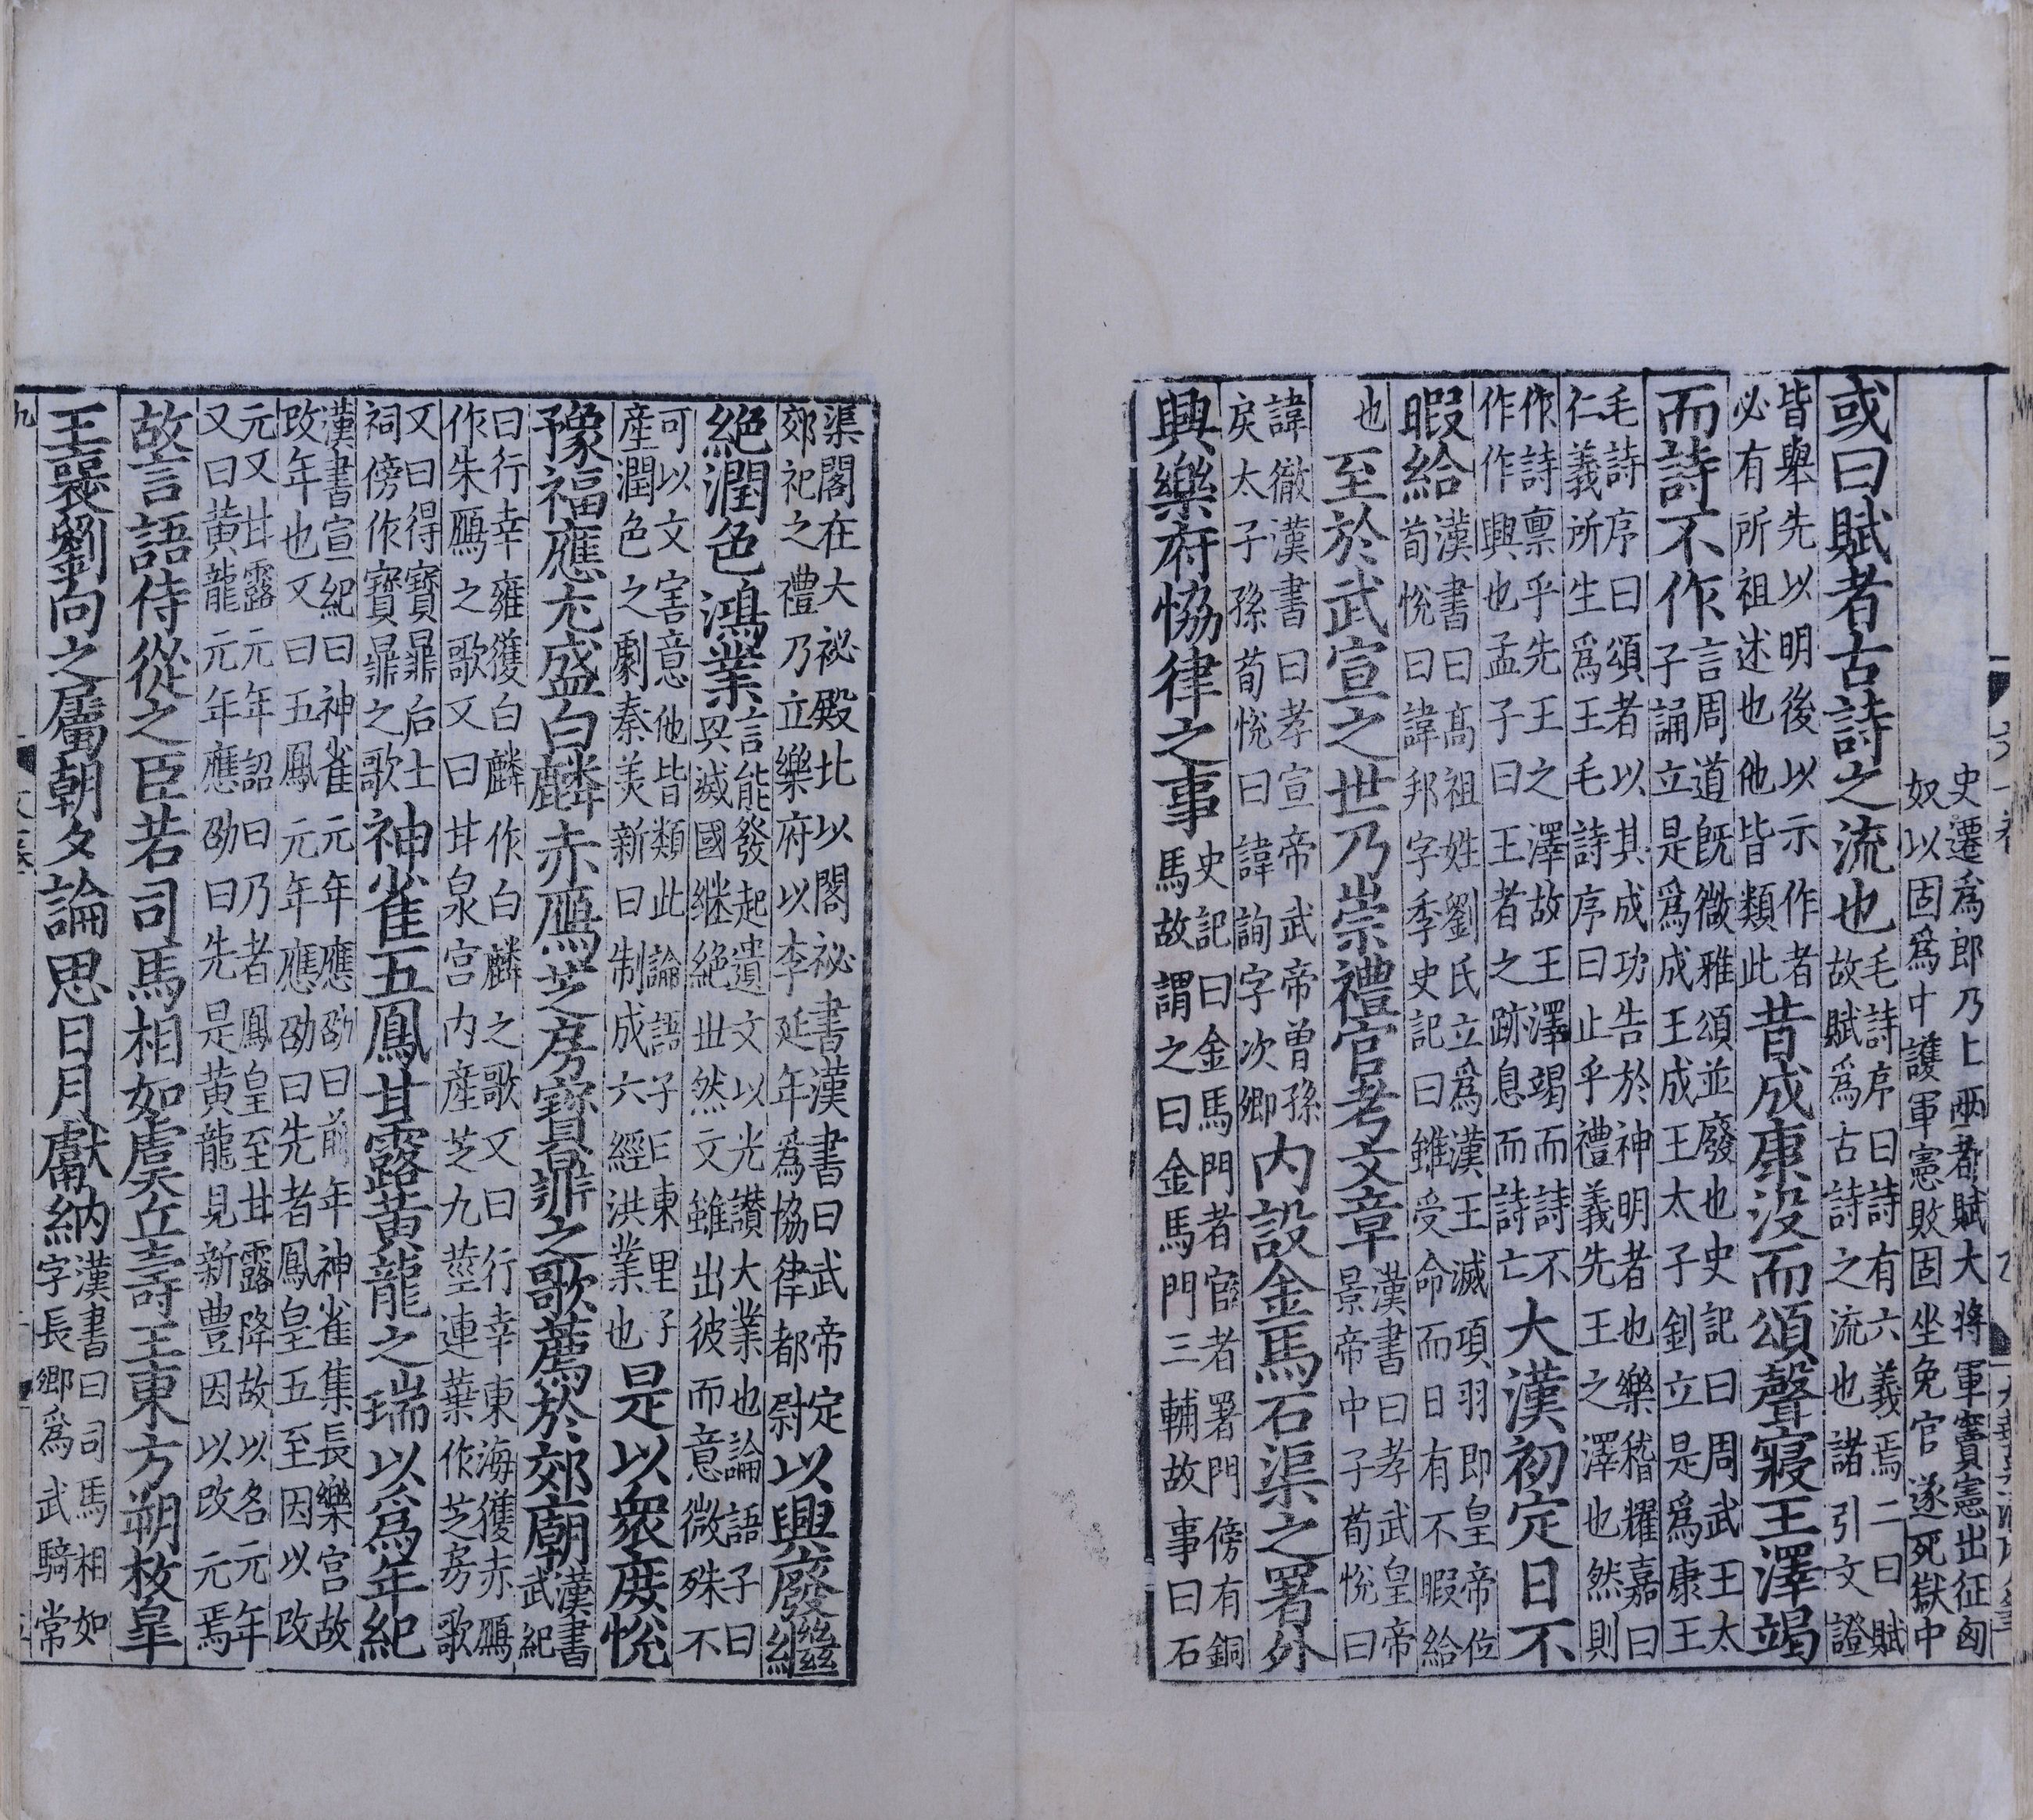 史遷爲郎乃上兩都賦大將軍竇憲出征匈
奴以固爲中護軍憲敗固坐免官遂死獄中
或曰賦者古詩之流也毛詩序曰詩有六義焉二曰賦
故賦爲古詩之流也諸引文證
皆舉先以明後以示作者
必有所祖述也他皆類此昔成康沒而頌聲寢王澤竭
而詩不作言周道旣微雅頌並廢也史記曰周武王太
子誦立是爲成王成王太子釗立是爲康王
毛詩序曰頌者以其成功告於神明者也樂稽耀嘉曰
仁義所生爲王毛詩序曰止乎禮義先王之澤也然則
作詩禀乎先王之澤故王澤竭而詩不
作作興也孟子曰王者之跡息而詩亡大漢初定日不
暇給漢書曰高祖姓劉氏立爲漢王滅項羽即皇帝位
荀悅曰諱邦字季史記曰雖受命而日有不暇給
也至於武宣之世乃崇禮官考文章漢書曰孝武皇帝
景帝中子荀悅曰
諱徹漢書曰孝宣帝武帝曾孫
戾太子孫荀悅曰諱詢字次卿內設金馬石渠之署外
興樂府恊律之事史記曰金馬門者宦者署門傍有銅
馬故謂之曰金馬門三輔故事曰石
渠閣在大祕殿北以閣祕書漢書曰武帝定
郊祀之禮乃立樂府以李延年爲協律都尉以興廢繼
絕潤色鴻業言能發起遺文以光讚大業也論語子曰
興滅國继絕世然文雖出彼而意微殊不
可以文害意他皆類此論語子曰東里子
産潤色之劇秦美新曰制成六經洪業也是以衆庶悅
豫福應尤盛白麟赤鴈芝房寶鼎之歌薦於郊廟漢書
武紀
曰行幸雍獲白麟作白麟之歌又曰行幸東海獲赤鴈
作朱鴈之歌又曰甘泉宫内産芝九莖連葉作芝房歌
又曰得寶鼎后土
祠傍作寶鼎之歌神雀五鳳甘露黃龍之瑞以爲年紀
漢書宣紀曰神雀元年應劭曰前年神雀集長樂宫故
改年也又曰五鳳元年應劭曰先者鳳皇五至因以改
元又甘露元年詔曰乃者鳳皇至甘露降故以名元年
又曰黃龍元年應劭曰先是黃龍見新豐因以改元焉
故言語侍從之臣若司馬相如虞丘壽王東方朔枚皋
王襃劉向之屬朝夕論思日月獻納漢書曰司馬相如
字長卿爲武騎常